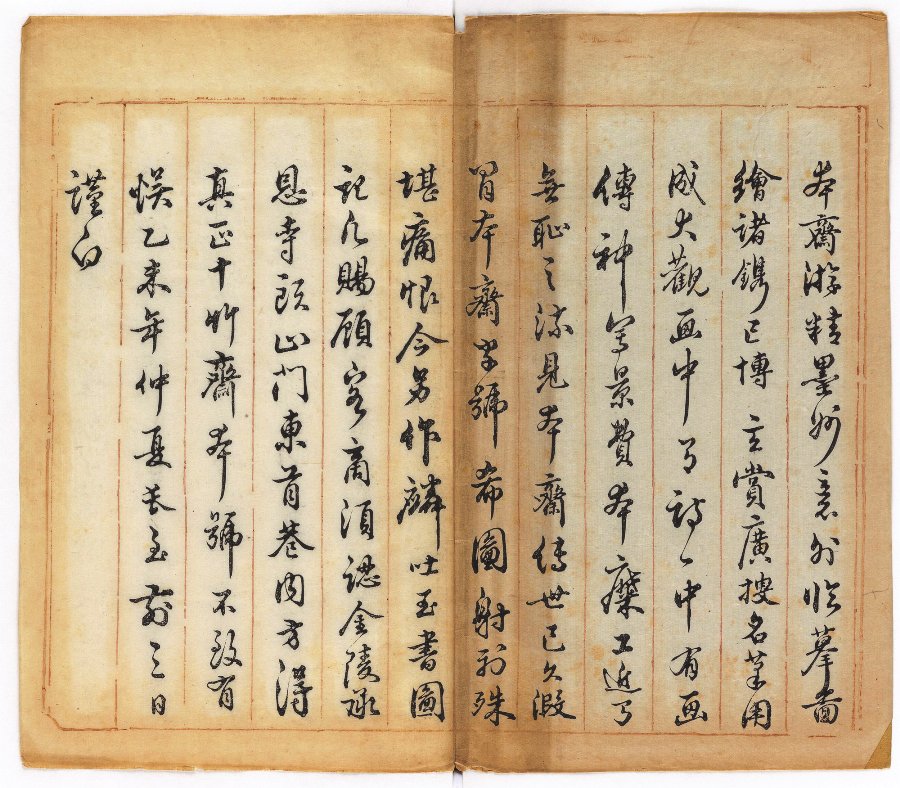 本齋游精墨妙意外臨摹畵
繪諸鐫已博玄賞廣搜名筆用
成大觀画中有詩〻中有画
傳神寫景費本糜工近有
無恥之流見本齋傳世已久假
冒本齋字號希圖射利殊
堪痛恨今另作麟吐玉書圖
記凡賜顧客商須認金陵承
恩寺頭山門東首巷內方得
真正十竹齋本號不致有
悞乙未年仲夏長至前三日
謹白